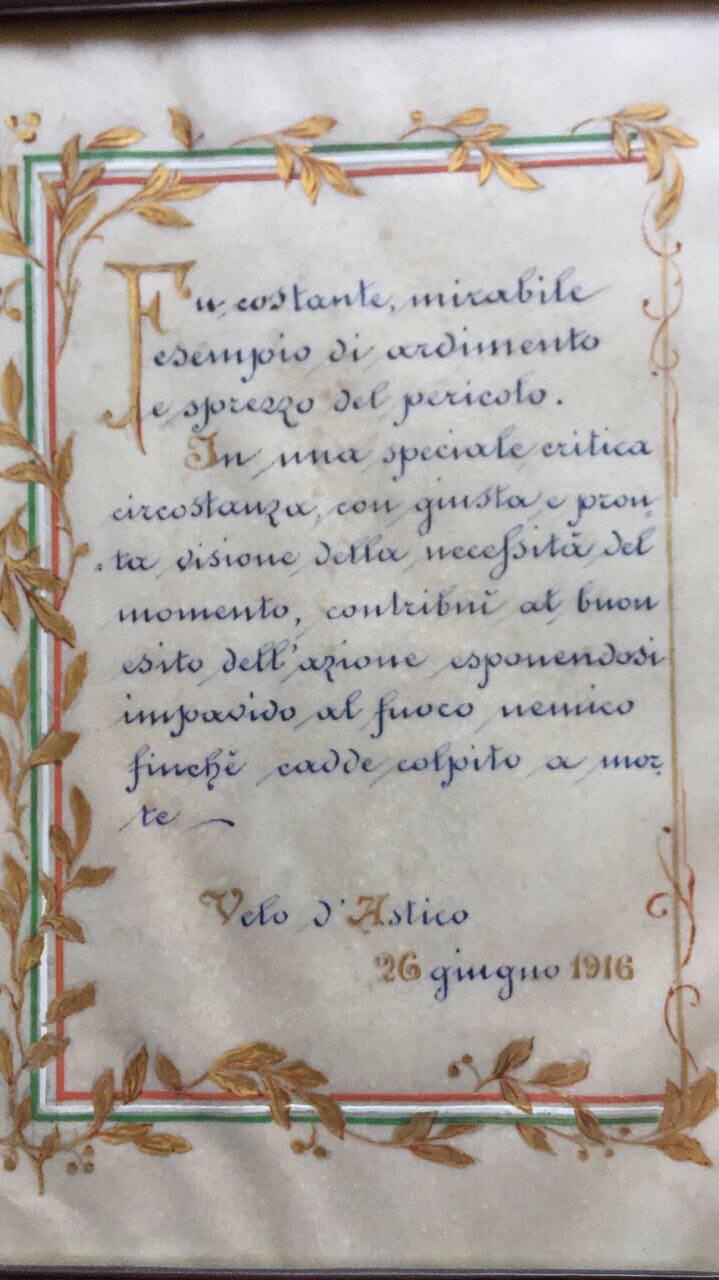 Fu costante, mirabile
esempio di ardimento
e sprezzo del pericolo.
In una speciale critica
circostanza, con giusta e pron-
-ta visione della necessità del
momento, contribuì al buon
esito dell'azione esponendosi
impavido al fuoco nemico
finchè cadde colpito a mor-
te —
Velo d'Astico
26 giugno 1916